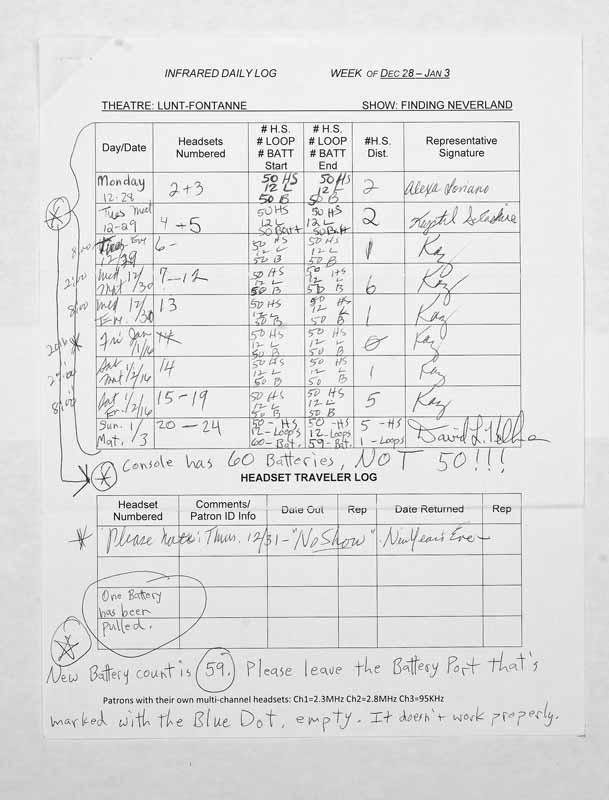 INFRARED DAILY LOG WEEK OF DEC 28 – JAN 3
THEATRE: LUNT-FONTANNE SHOW: FINDING NEVERLAND
Day/Date Headsets Numbered # H.S. # LOOP # BATT Start # H.S. # LOOP # BATT End #H.S. Dist. Representative Signature
Monday 12-28 2+3 50 HS 12 L 50 B 50 HS 12 L 50 B 2 Alexa
Tues Mat 12-29 4+5 50 HS 12 L 50 Batt 50 HS 12 L 50 Batt 2 Krystil
8:00 Tues Eve 12/29 6- 50 HS 12 L 50 B 50 HS 12 L 50 B 1 Kay
2:00 Wed 12/30 Mat 7-12 50 HS 12 L 50 B 50 HS 12 L 50 B 6 Kay
8:00 Wed 12/30 Ev. 13 50 HS 12 L 50 B 50 HS 12 L 50 B 1 Kay
* Fri Jan 1/1/16 50 HS 12 L 50 B 50 HS 12 L 50 B 0 Kay
Sat Mat 1/2/16 14 50 HS 12 L 50 B 50 HS 12 L 50 B 1 Kay
8:00 Sat Ev. 1/2/16 15-19 50 HS 12 L 50 B 50 HS 12 L 50 B 5 Kay
Sun. 1/3 Mat. 20-24 50-HS 12-Loops 60-Bat. 50-HS 12-Loops 59-Bat. 5-HS 1-Loops David L.
* Console has 60 Batteries, NOT 50!!!
HEADSET TRAVELER LOG
Headset Numbered Comments/ Patron ID Info Date Out Rep Date Returned Rep
* Please note: Thurs. 12/31 - "No Show" - New Year's Eve -
One Battery
has been
pulled.
* New Battery count is 59. Please leave the Battery Port that's
Patrons with their own multi-channel headsets: Ch1=2.3MHz Ch2=2.8MHz Ch3=95KHz
marked with the Blue Dot, empty. It doesn't work properly.